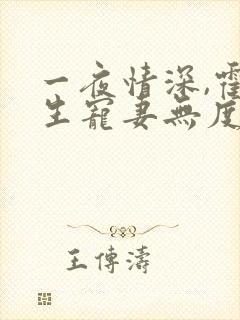 一夜情深,霍
生寵妻無度
王傳濤